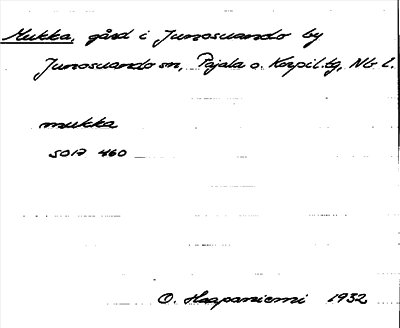 Mukka, gård i Junosuando by
Junosuando sn, Pajala o. Korpil. tg, Nb l.
mukka
SOI7 460
O. Haapaniemi 1932